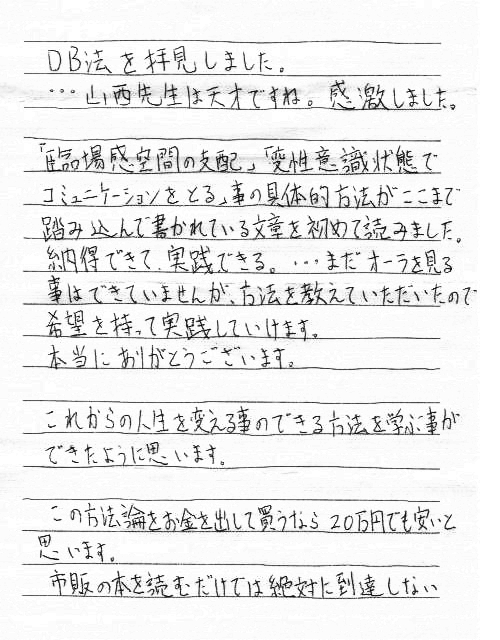 DB法を拝見しました。
…山西先生は天才ですね。感激しました。
「臨場感空間の支配」「変性意識状態で
コミュニケーションをとる」事の具体的方法がここまで
踏み込んで書かれている文章を初めて読みました。
納得できて、実践できる。…まだオーラを見る
事はできていませんが、方法を教えていただいたので
希望を持って実践していけます。
本当にありがとうございます。
これからの人生を変える事のできる方法を学ぶ事が
できたように思います。
この方法論をお金を出して買うなら20万円でも安いと
思います。
市販の本を読むだけでは絶対に到達しない